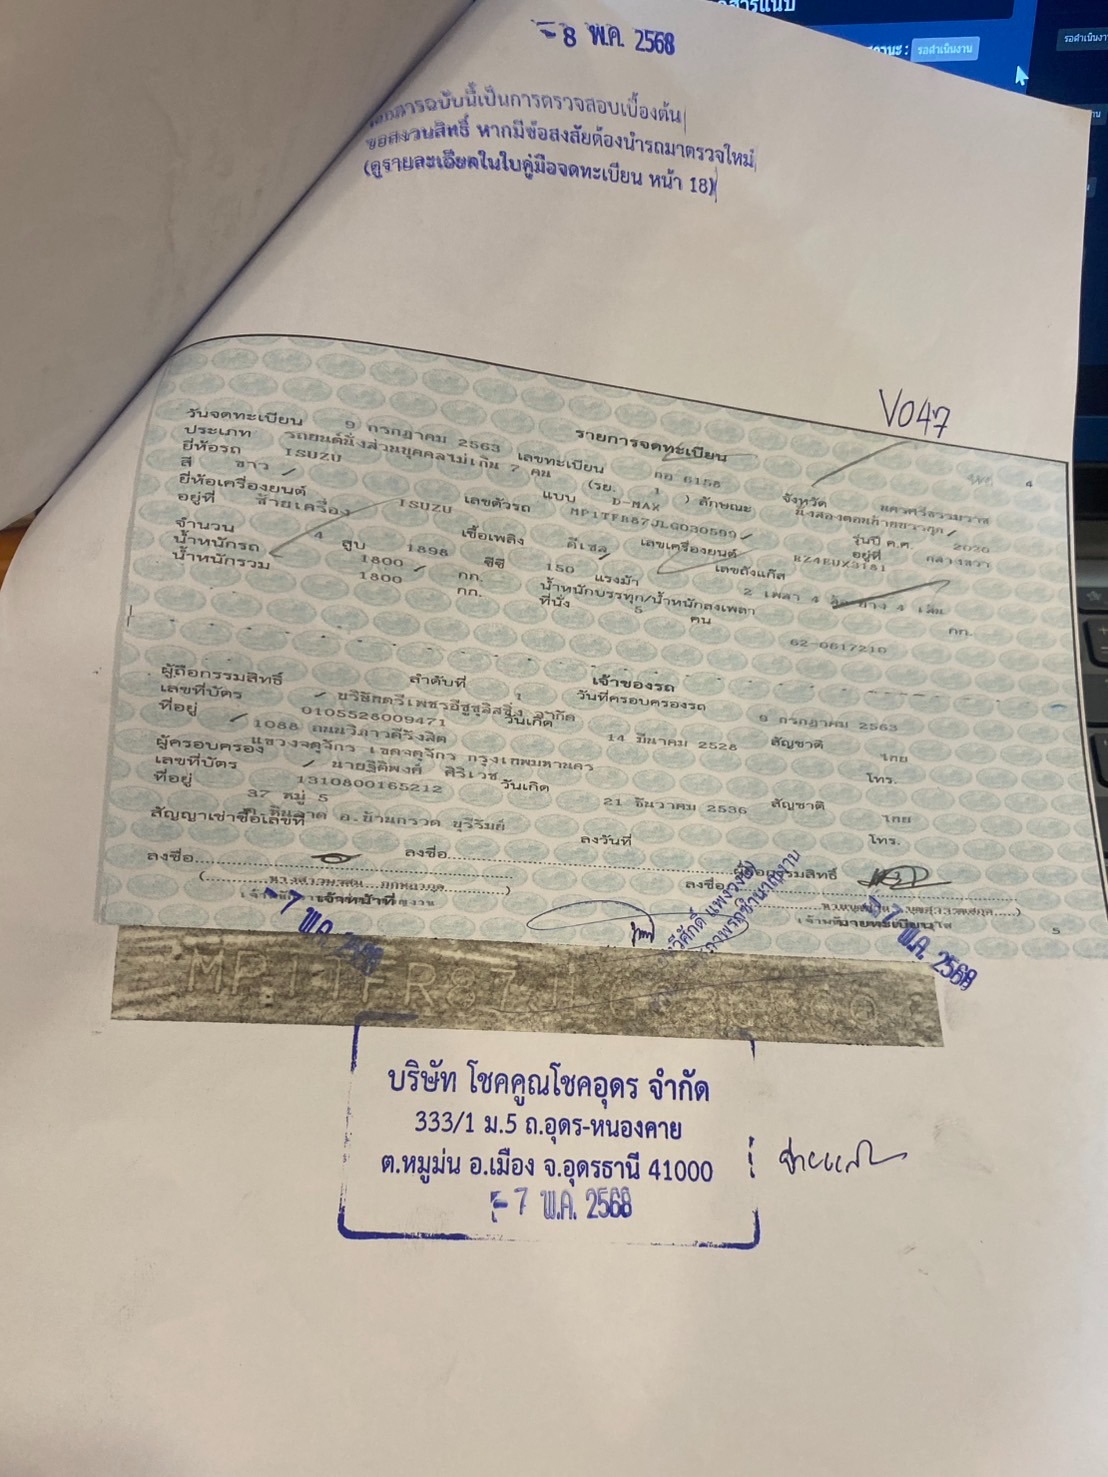 สถานะ : รอดำเนินงาน
- 8 พ.ค. 2568
เอกสารฉบับนี้เป็นการตรวจสอบเบื้องต้น
ขอสงวนสิทธิ์ หากมีข้อสงสัยต้องนำรถมาตรวจใหม่
(ดูรายละเอียดในใบคู่มือจดทะเบียน หน้า 18)
V047
รายการจดทะเบียน
4
วันจดทะเบียน 9 กรกฎาคม 2563 เลขทะเบียน กอ 6158 จังหวัด นครศรีธรรมราช
ประเภท รถยนต์นั่งส่วนบุคคลไม่เกิน 7 คน (รย. 1 ) ลักษณะ นั่งสองตอนท้ายบรรทุก
ยี่ห้อรถ ISUZU แบบ D-MAX รุ่นปี ค.ศ. 2020
สี ขาว เลขตัวรถ MP1TFR87JLG030599 อยู่ที่ กลางขวา
ยี่ห้อเครื่องยนต์ ISUZU เลขเครื่องยนต์ RZ4EUX3181
อยู่ที่ ซ้ายเครื่อง เชื้อเพลิง ดีเซล เลขถังแก๊ส
จำนวน 4 สูบ 1898 ซีซี 150 แรงม้า 2 เพลา 4 ล้อ ยาง 4 เส้น
น้ำหนักรถ 1800 กก. น้ำหนักบรรทุก/น้ำหนักลงเพลา กก.
น้ำหนักรวม 1800 กก. ที่นั่ง 5 คน
62-0617210
เจ้าของรถ
ลำดับที่ 1 วันที่ครอบครองรถ 9 กรกฎาคม 2563
ผู้ถือกรรมสิทธิ์ บริษัทตรีเพชรอีซูซุลิสซิ่ง จำกัด
เลขที่บัตร 0105528009471 วันเกิด 14 มีนาคม 2528 สัญชาติ ไทย
ที่อยู่ 1088 ถนนวิภาวดีรังสิต
แขวงจตุจักร เขตจตุจักร กรุงเทพมหานคร โทร.
ผู้ครอบครอง นายฐิติพงศ์ ศิริเวช
เลขที่บัตร 1310800165212 วันเกิด 21 ธันวาคม 2536 สัญชาติ ไทย
ที่อยู่ 37 หมู่ 5
อ.บ้านกรวด บุรีรัมย์ โทร.
สัญญาเช่าซื้อเลขที่ ลงวันที่
ลงชื่อ ลงชื่อ ผู้ถือกรรมสิทธิ์
ลงชื่อ
เจ้าหน้าที่ นายทะเบียน
5
- 7 พ.ค. 2568
- 7 พ.ค. 2568
MP1TFR87J
บริษัท โชคคูณโชคอุดร จำกัด
333/1 ม.5 ถ.อุดร-หนองคาย
ต.หมูม่น อ.เมือง จ.อุดรธานี 41000
- 7 พ.ค. 2568